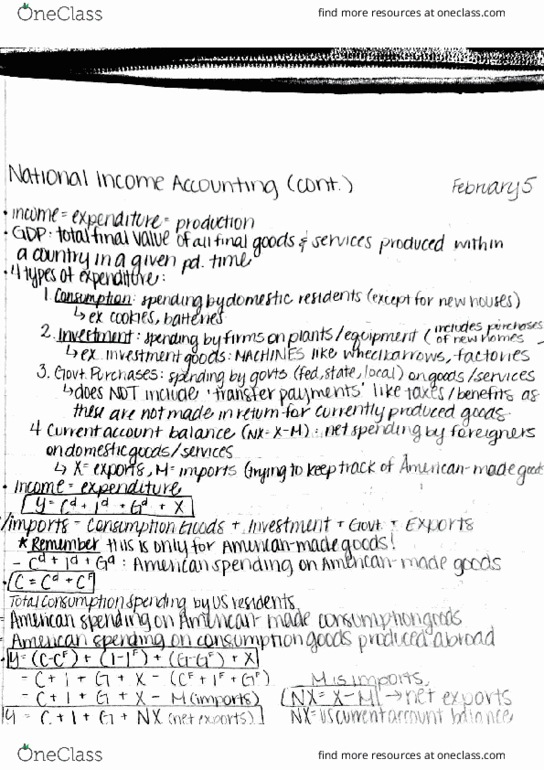 OneClass
find more resources at oneclass.com
National Income Accounting (cont.)
February 5
• income = expenditure = production
• GDP: total final value of all final goods & services produced within
a country in a given pd. time
• 4 types of expenditure:
1. Consumption: spending by domestic residents (except for new houses)
↳ ex cookies, batteries
2. Investment: spending by firms on plants/equipment (includes purchases
of new homes
↳ ex. investment goods: MACHINES like wheelbarrows, factories
3. Govt. Purchases: spending by govts (fed, state, local) on goods/services
↳ does NOT include 'transfer payments' like taxes/benefits as
these are not made in return for currently produced goods
4 Current account balance (NX = X-M): net spending by foreigners
on domestic goods/services
↳ X = exports, M = imports (trying to keep track of American-made goods
• income = expenditure
Y = Cᵈ + Iᵈ + Gᵈ + X
/imports = Consumption Goods + Investment + Govt + Exports
* Remember this is only for American-made goods!
- Cᵈ + Iᵈ + Gᵈ : American spending on American-made goods
• C = Cᵈ + Cᶠ
Total consumption spending by US residents
= American spending on American-made consumption goods
American spending on consumption goods produced abroad
Y = (C-Cᶠ) + (I-Iᶠ) + (G-Gᶠ) + X
- C + I + G + X - (Cᶠ + Iᶠ + Gᶠ)
M is imports,
- C + I + G + X - M (imports)
NX = X-M → net exports
Y = C + I + G + NX (net exports)
NX = US current account balance
OneClass
find more resources at oneclass.com